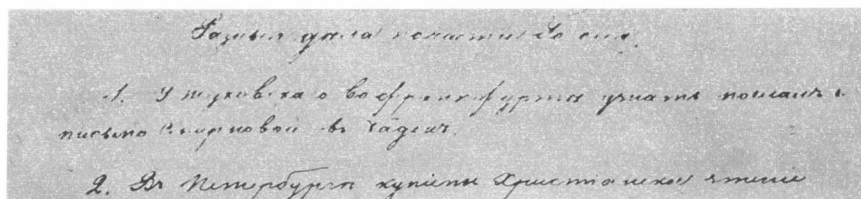 Разныя дела
1. У Жуковскаго во Франкфурте узнать послалъ
письмо Смирновой въ
2. Въ Петербурге купить Христианское чтение